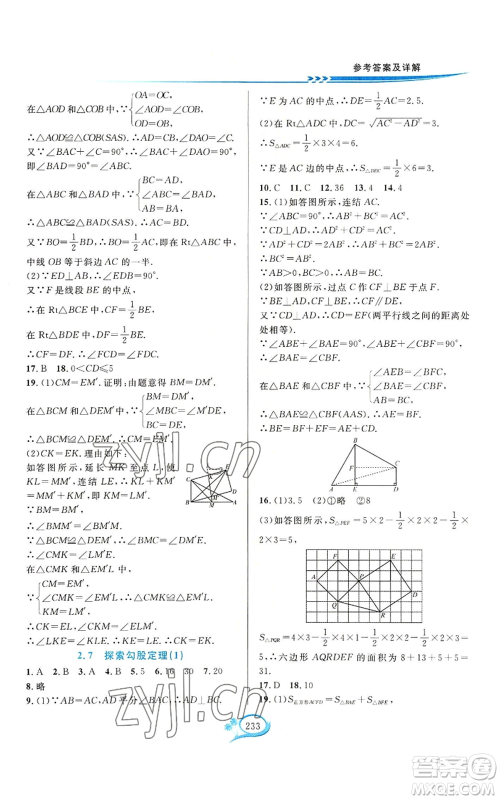 参考答案及详解
{OA=OC,
在△AOD和△COB中,∵{∠AOD=∠COB=90°,
OD=OB,
∴△AOD≌△COB(SAS).∴AD=CB.
又∵∠DAO+∠ADO=90°,∴∠BCO+∠ADO=90°,
即∠BAD=∠ABC=90°.
BC=AD,
在△ABC和△BAD中,∵{∠ABC=∠BAD,
AB=BA,
∴△ABC≌△BAD(SAS).∴AC=BD.
又∵BO=1/2 BD,∴BO=1/2 AC,即在Rt△ABC中,
中线OB等于斜边AC的一半.
(2)∵ED⊥AB,∴∠EDB=90°.
又∵F是线段BE的中点,
∴在Rt△BCE中,CF=1/2 BE,
在Rt△EDB中,DF=1/2 BE,
∴CF=DF.
17.B 18.0<CD≤5
19.(1)CM=EM′.证明:由题意得BM=DM′.
BM=DM′,
在△BCM和△DEM′中,∵{∠MBC=∠M′DE,
BC=DE,
∴△BCM≌△DEM′.∴CM=EM′.
(2)CK=EK.理由:
如答图所示,延长MK至点L,使
KL=MM′,连结LM′.
∵BM=BM′,
∴∠BMM′=∠BM′M.
∵KL=MM′,∴KM=LM′.
∵BM′∥LE,∴∠BM′M=∠L.
∴∠BMM′=∠L.
∵∠CMB=∠EM′D,
∴∠CMK=∠LM′E.
CM=EM′,
在△CMK和△EM′L中,∵{∠CMK=∠EM′L,
KM=LM′,
∴△CMK≌△EM′L.∴CK=EL.
又∵∠EKM′=∠L,∴EK=EL,∴CK=EK.
2.7 探索勾股定理(1)
1.A 2.A 3.C 4.D 5.B 6.10 7.20
8.略
9.(1)∵AB=AC,AD平分∠BAC,∴AD⊥BC.
∵E为AC的中点,∴DE=1/2 AC=2.5.
(2)在Rt△ADC中,DC=√(AC²−AD²)=3,
∴S△ADC=1/2×3×4=6.
∵E是AC边的中点,∴S△DEC=1/2×6=3.
10.C 11.C 12.36 13.4 14.4
15.(1)如答图所示,连结AC.
∵∠ABC=90°,∴AB²+BC²=AC².
∵CD⊥AD,∴AD²+CD²=AC².
∵AD²+CD²=2AB²,∴AB²+BC²=2AB².
∴BC²=AB².
∵AB>0,BC>0,∴AB=BC.
(2)如答图所示,过点C作CF⊥BE于点F.
∵BE⊥AD,∴CF∥AD,
∵CD⊥AD,∴CD=EF(两平行线之间的距离处
处相等).
∵∠ABE+∠BAE=90°,∠ABE+∠CBF=90°,
∠AEB=∠BFC,
∴∠BAE=∠CBF.∴{∠BAE=∠CBF,
AB=BC,
∴△BAE≌△CBF(AAS).∴AE=BF.
∴BE=BF+EF=AE+CD.
16.(1)3.5 (2)①略 ②8
(3)如答图所示,S△PEF=5×2−1/2×2×4−1/2
×2×3=5,
S△PQR=4×3−1/2×2×2−1/2×2×3−1/2×1×4=5,
∴六边形AQRDEF的面积为8+13+5+5=
31.
17.D 18.10
19.(1)S正方形ACFD=S△BAE+S△BFE
233